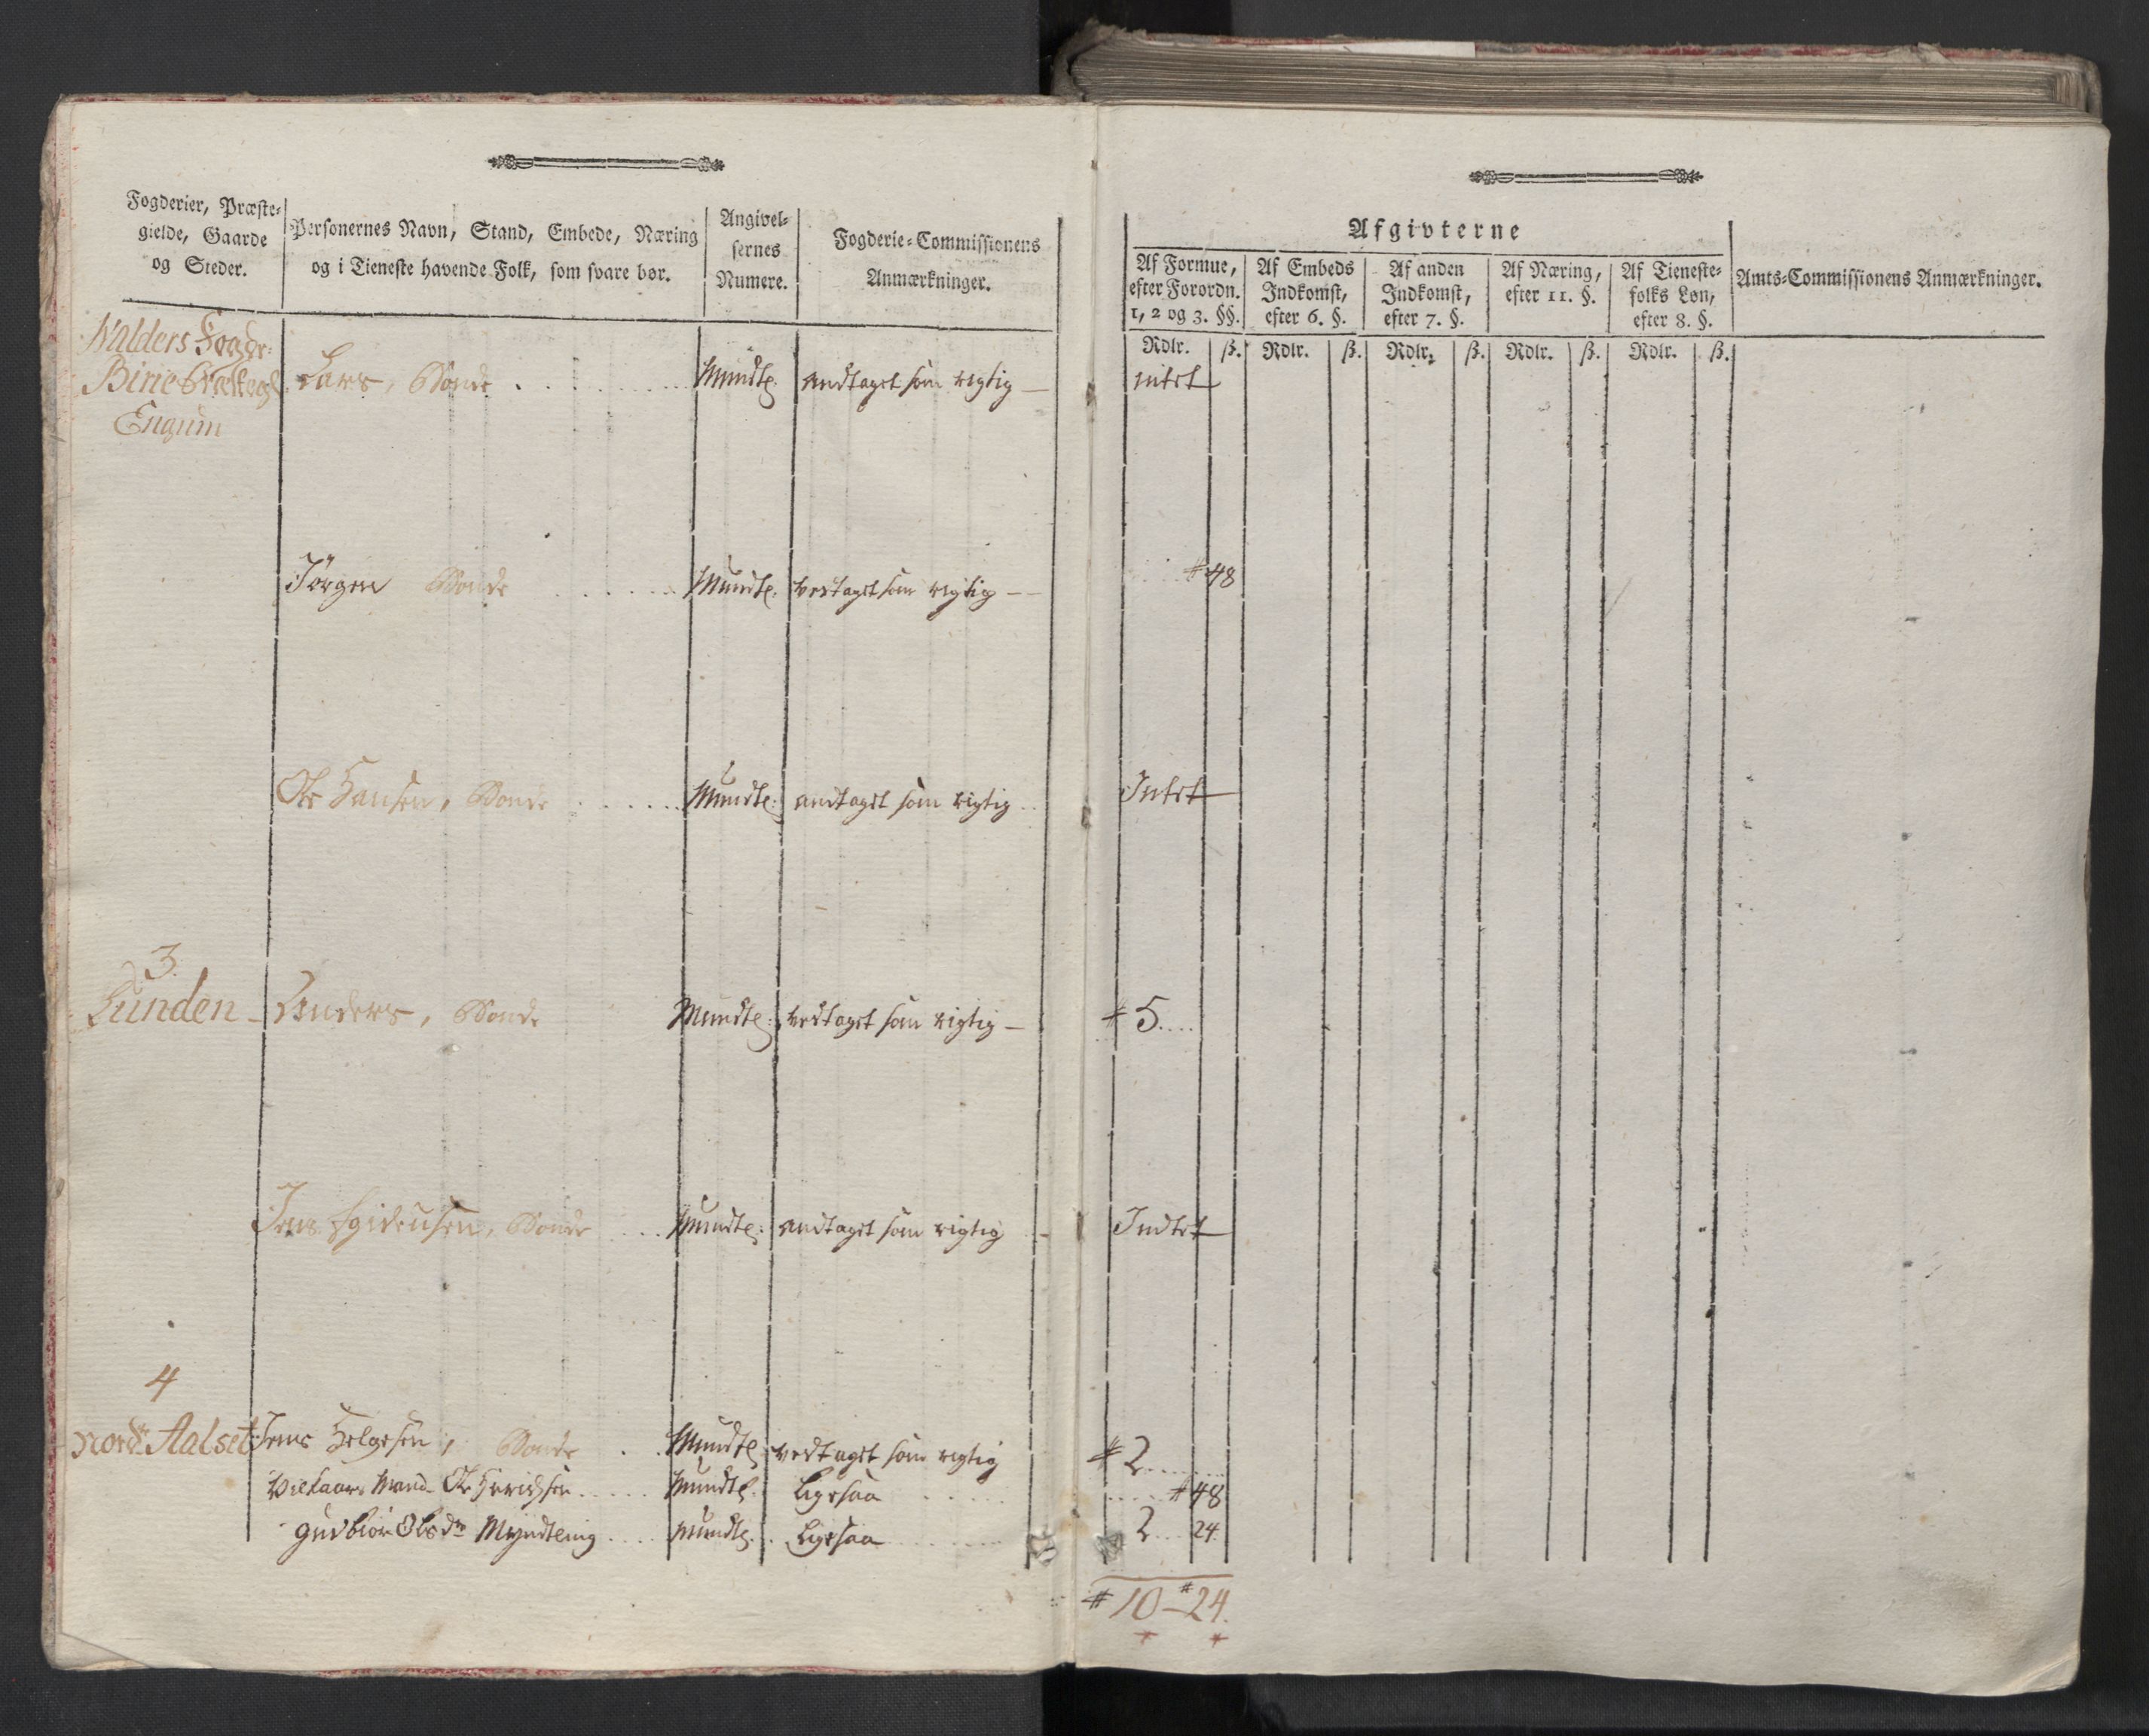 Fogderier, Præste-
gielde, Gaarde
og Steder.
Personernes Navn, Stand, Embede, Næring
og i Tieneste havende Folk, som svare bør.
Angivel-
sernes
Numere.
Fogderie-Commissionens
Anmærkninger.
Walders Fogdr:
Birie Præsteg
Engum
Lars, Bonde . . . . . Mundtl: andtaget som rigtig —
Jørgen Bonde . . . . . Mundtl: vedtaget som rigtig — —
Ole Hansen, Bonde . . . . . Mundtl: andtaget som rigtig . .
3.
Lunden - Anders, Bonde Mundtl: vedtaget som rigtig —
Jens Bonde . . . Mundtl: andtaget som rigtig . -
4
Nordr Aalset Jens Helgesen, Bonde . . Mundtl vedtaget som rigtig
Vilkaars Mand Ole . . . . . Mundtl. Ligesaa . . . . .
Gudbiør Olsdr Myndtling . . . . Mundtl. . Ligesaa . . . . .
Afgivterne
Af Formue,
efter Forordn.
1, 2 og 3. §§.
Af Embeds
Indkomst,
efter 6. §.
Af anden
Indkomst,
efter 7. §.
Af Næring,
efter 11. §.
Af Tieneste-
folks Løn,
efter 8. §.
Amts-Commissionens Anmærkninger.
Rdlr. ß. Rdlr. ß. Rdlr. ß. Rdlr. ß. Rdlr. ß.
intet
48
Intet
5 . . . .
Indtet
2 . . . . .
48
2 . . . 24.
10 — 24.